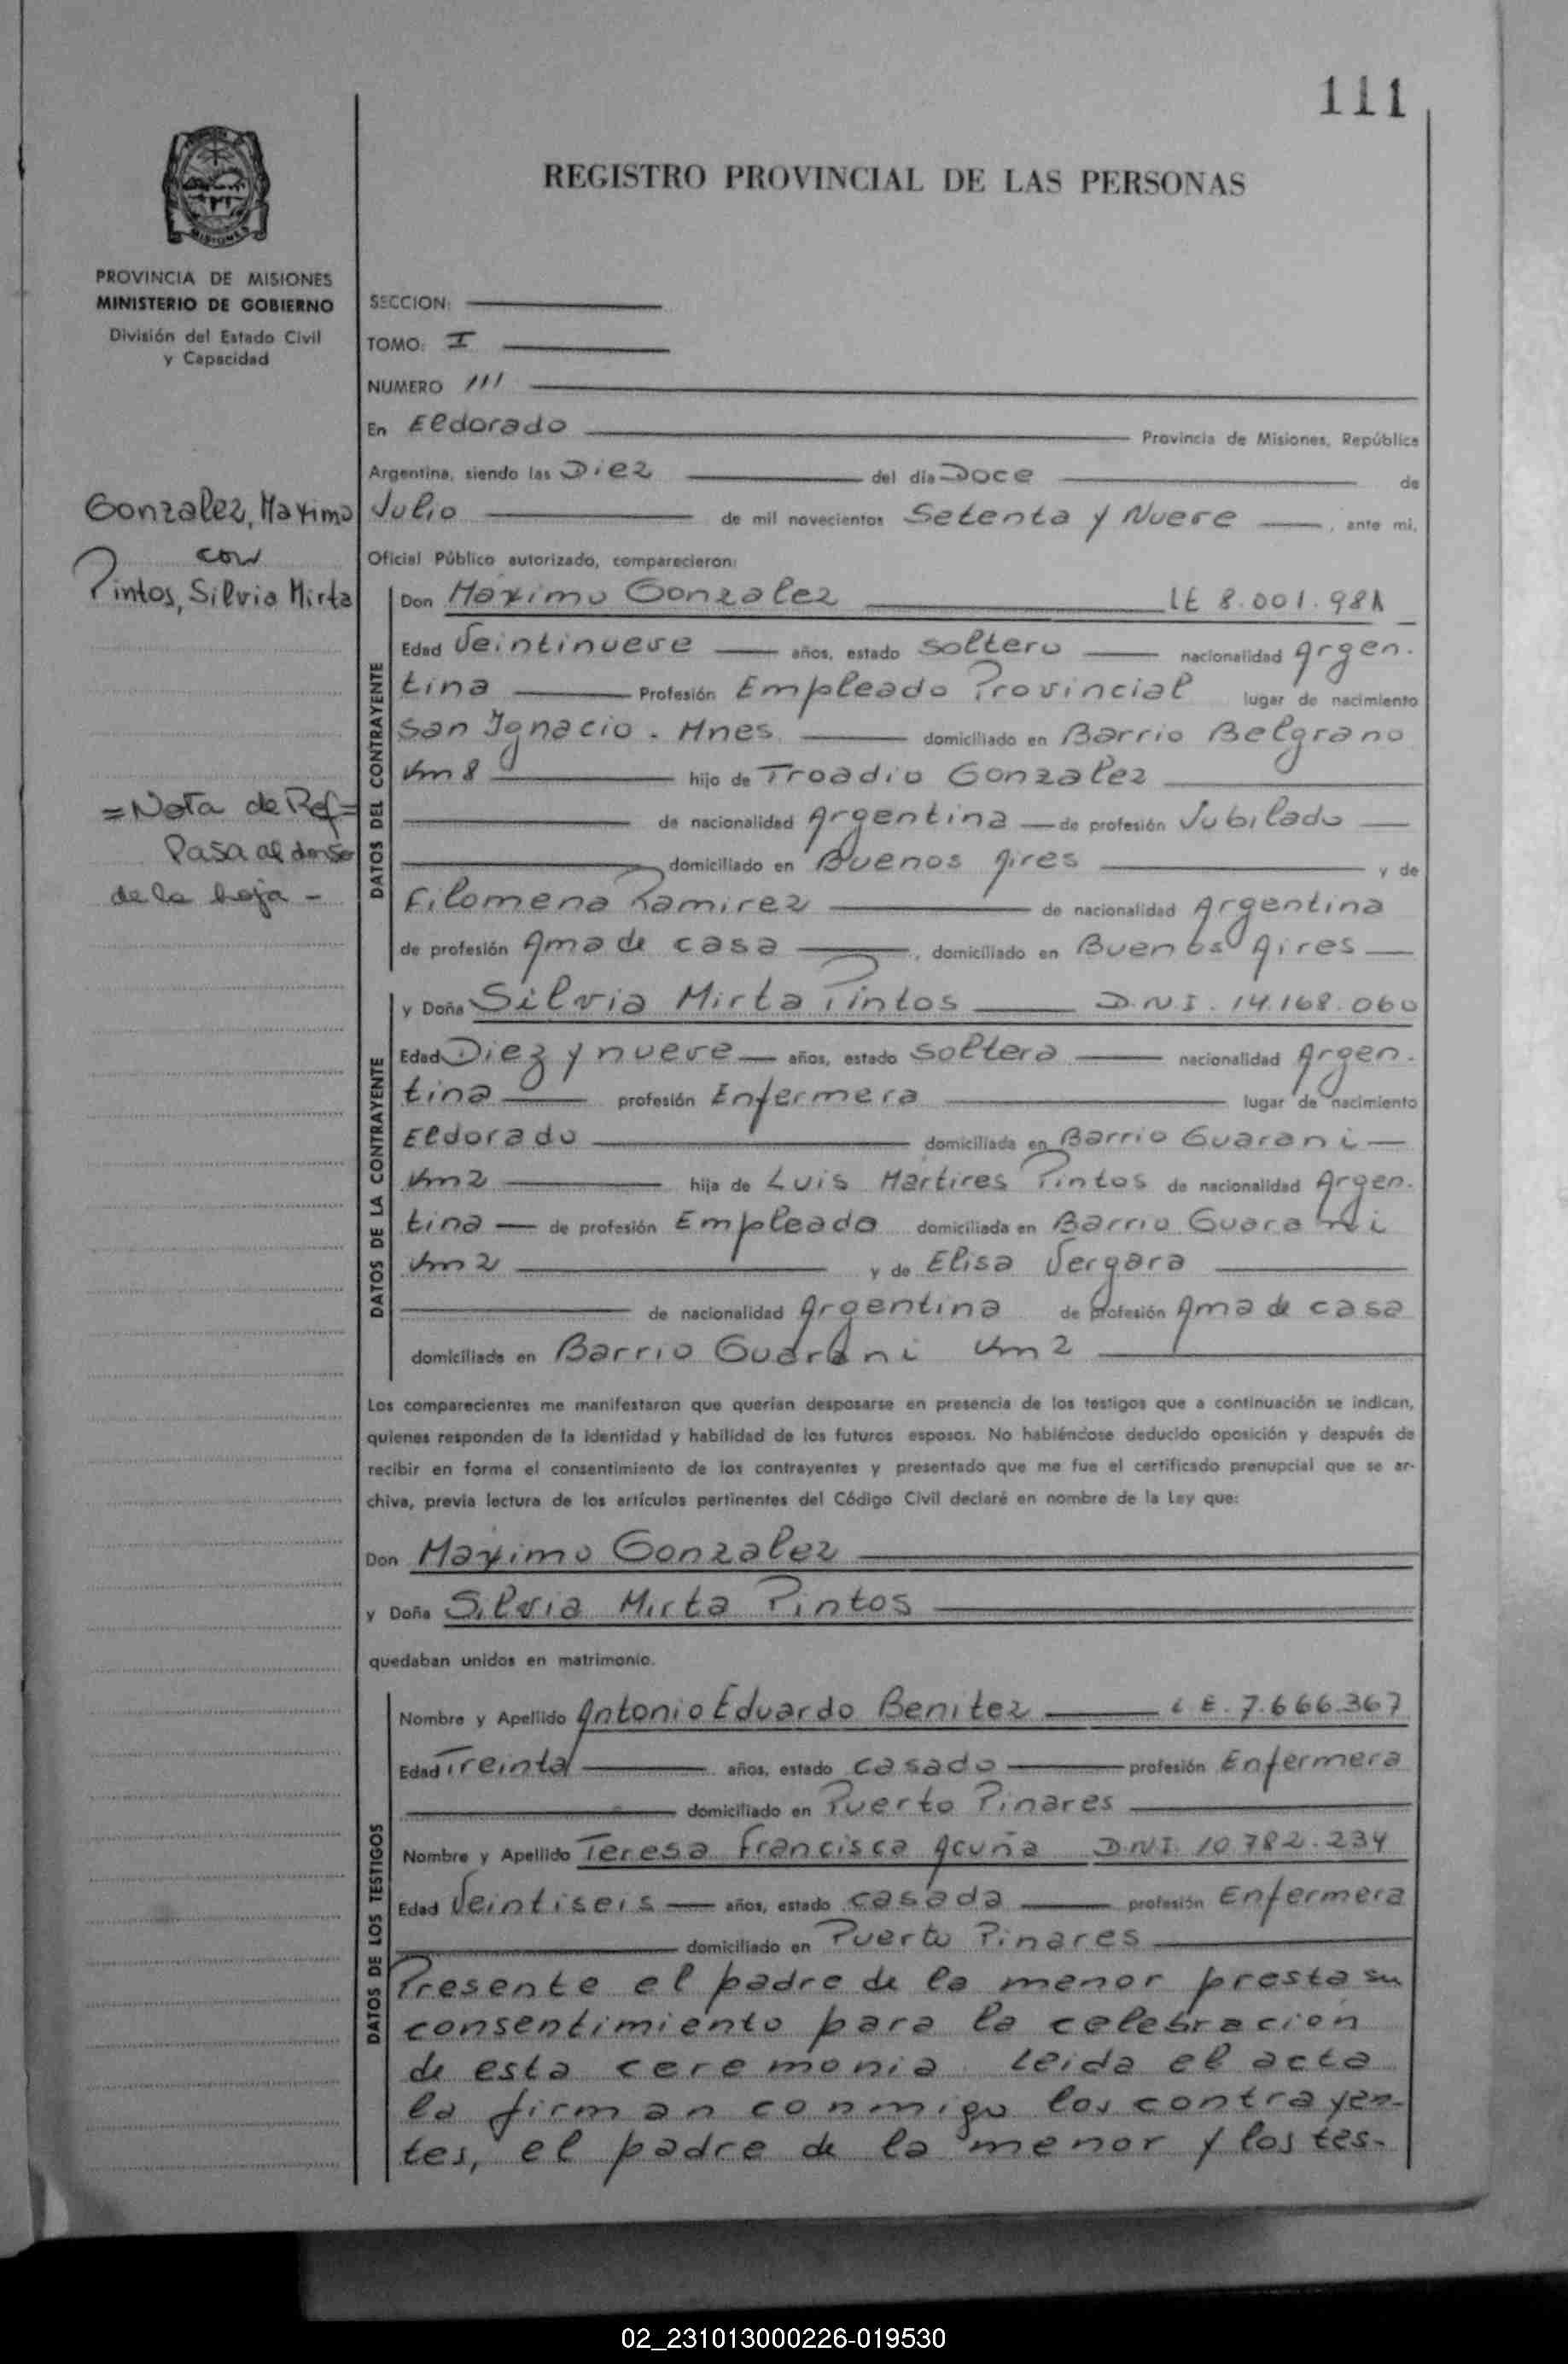 111
REGISTRO PROVINCIAL DE LAS PERSONAS
MISIONES
PROVINCIA DE MISIONES
MINISTERIO DE GOBIERNO
División del Estado Civil
y Capacidad
SECCION:
TOMO: I
NUMERO 111
En Eldorado Provincia de Misiones, República
Argentina, siendo las Diez del día Doce de
Julio de mil novecientos Setenta y Nueve, ante mi,
Oficial Público autorizado, comparecieron:
Gonzalez, Maximo
con
Pintos, Silvia Mirta
=Nota de Ref=
Pasa al dorso
de la hoja -
DATOS DEL CONTRAYENTE
Don Maximo Gonzalez LE 8.001.981
Edad Veintinueve años, estado soltero nacionalidad Argen-
tina Profesión Empleado Provincial lugar de nacimiento
San Ignacio. Mnes. domiciliado en Barrio Belgrano
Km 8 hijo de Troadio Gonzalez
de nacionalidad Argentina de profesión Jubilado
domiciliado en Buenos Aires y de
Filomena Ramirez de nacionalidad Argentina
de profesión Ama de casa, domiciliado en Buenos Aires
DATOS DE LA CONTRAYENTE
y Doña Silvia Mirta Pintos D.N.I. 14.168.060
Edad Diez y nueve años, estado soltera nacionalidad Argen-
tina profesión Enfermera lugar de nacimiento
Eldorado domiciliada en Barrio Guarani
Km 2 hija de Luis Martires Pintos de nacionalidad Argen-
tina de profesión Empleado domiciliada en Barrio Guarani
Km 2 y de Elisa Vergara
de nacionalidad Argentina de profesión Ama de casa
domiciliada en Barrio Guarani Km 2
Los comparecientes me manifestaron que querían desposarse en presencia de los testigos que a continuación se indican,
quienes responden de la identidad y habilidad de los futuros esposos. No habiéndose deducido oposición y después de
recibir en forma el consentimiento de los contrayentes y presentado que me fue el certificado prenupcial que se ar-
chiva, previa lectura de los artículos pertinentes del Código Civil declaré en nombre de la Ley que:
Don Maximo Gonzalez
y Doña Silvia Mirta Pintos
quedaban unidos en matrimonio.
DATOS DE LOS TESTIGOS
Nombre y Apellido Antonio Eduardo Benitez L E. 7.666.367
Edad Treinta años, estado casado profesión Enfermera
domiciliado en Puerto Pinares
Nombre y Apellido Teresa Francisca Acuña D.N.I. 10.782.234
Edad Veintiseis años, estado casada profesión Enfermera
domiciliado en Puerto Pinares
Presente el padre de la menor presta su
consentimiento para la celebración
de esta ceremonia. Leida el acta
la firman conmigo los contrayen-
tes, el padre de la menor y los tes-
02_231013000226-019530